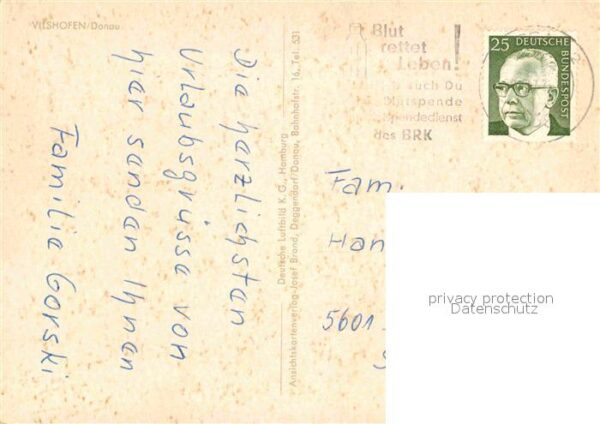 VILSHOFEN/Donau
Die herzlichsten
Urlaubsgrüsse von
hier sendan Ihnen
Familie Gorski
Deutsche Luftbild K.G., Hamburg
Ansichtskartenverlag Josef Brand, Deggendorf Donau, Bahnhofstr. 16, Tel. 531
Blut
rettet
Leben!
auch Du
Blutspende
spendedienst
des BRK
25 DEUTSCHE
BUNDESPOST
Fam.
Han
5601
privacy protection
Datenschutz